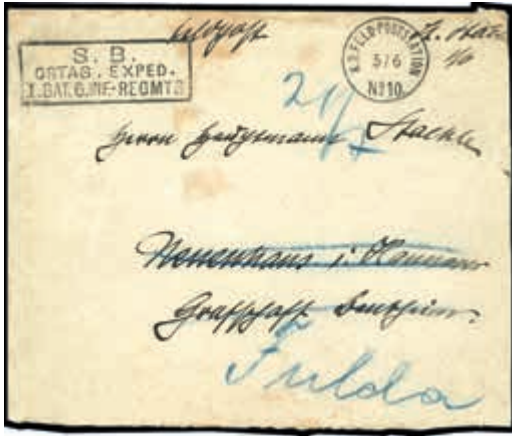 Feldpost
S. B.
OSTAS. EXPED.
I. BAT. 6. INF.-REGMTS
K.D. FELD-POSTSTATION
5/6
No 10.
Herrn Hauptmann Staehle
Neuenhaus i. Hannover
Grafschaft Bentheim.
Fulda